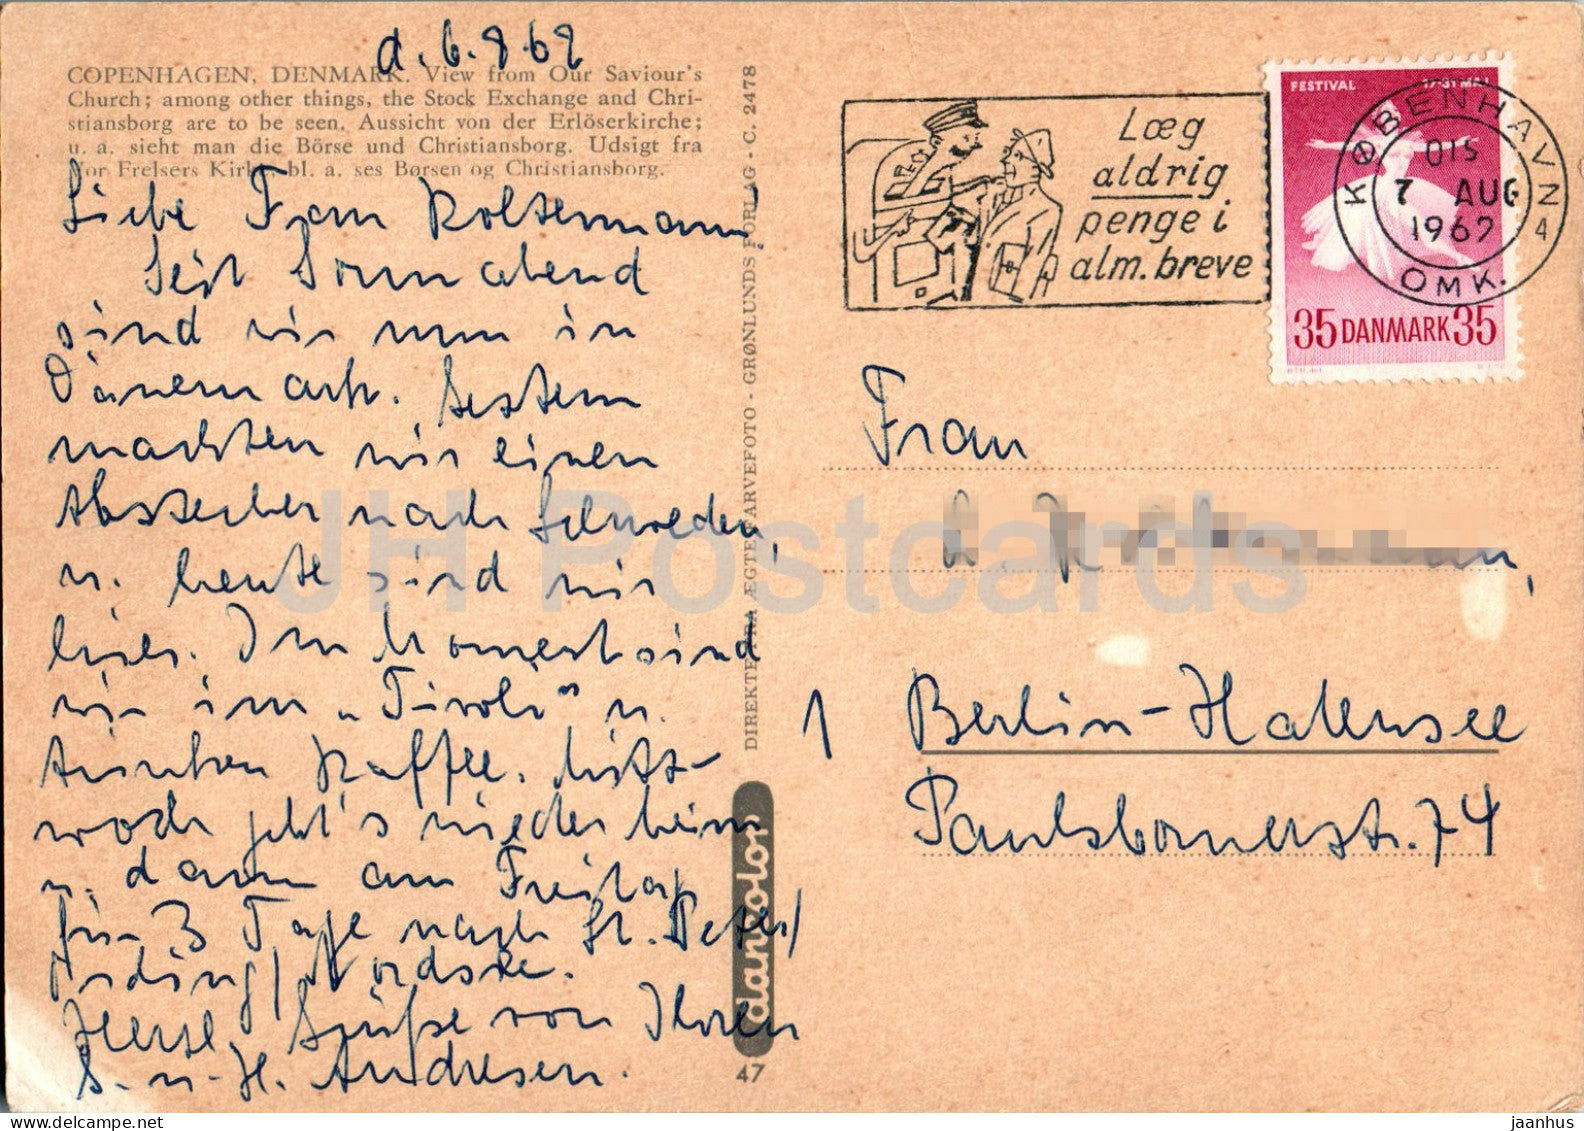 d. 6.8.62
COPENHAGEN, DENMARK. View from Our Saviour's
Church; among other things, the Stock Exchange and Chri-
stiansborg are to be seen. Aussicht von der Erlöserkirche;
u. a. sieht man die Börse und Christiansborg. Udsigt fra
Vor Frelsers Kirke, bl. a. ses Børsen og Christiansborg.
Liebe Frau Koltermann!
Seit Sonnabend
sind wir nun in
Dänemark. Gestern
machten wir einen
Abstecher nach Schweden,
u. heute sind wir
hier. Im Moment sind
wir im „Tivoli" u.
trinken Kaffee. Mitt-
woch geht's wieder heim
u. dann am Freitag
für 3 Tage nach St. Peter/
Ording/Nordsee.
Herzl. Grüße von Ihren
S. u. H. Andresen.
DIREKTE FRA ÆGTE FARVEFOTO - GRØNLUNDS FORLAG - C. 2478
danvolor
47
Læg
aldrig
penge i
alm. breve
FESTIVAL 17-31 MAJ
35 DANMARK 35
KØBENHAVN
OMK.
4
015
7 AUG
1962
Frau
1 Berlin-Halensee
Paulsbornerstr. 74
JH Postcards
jaanhus